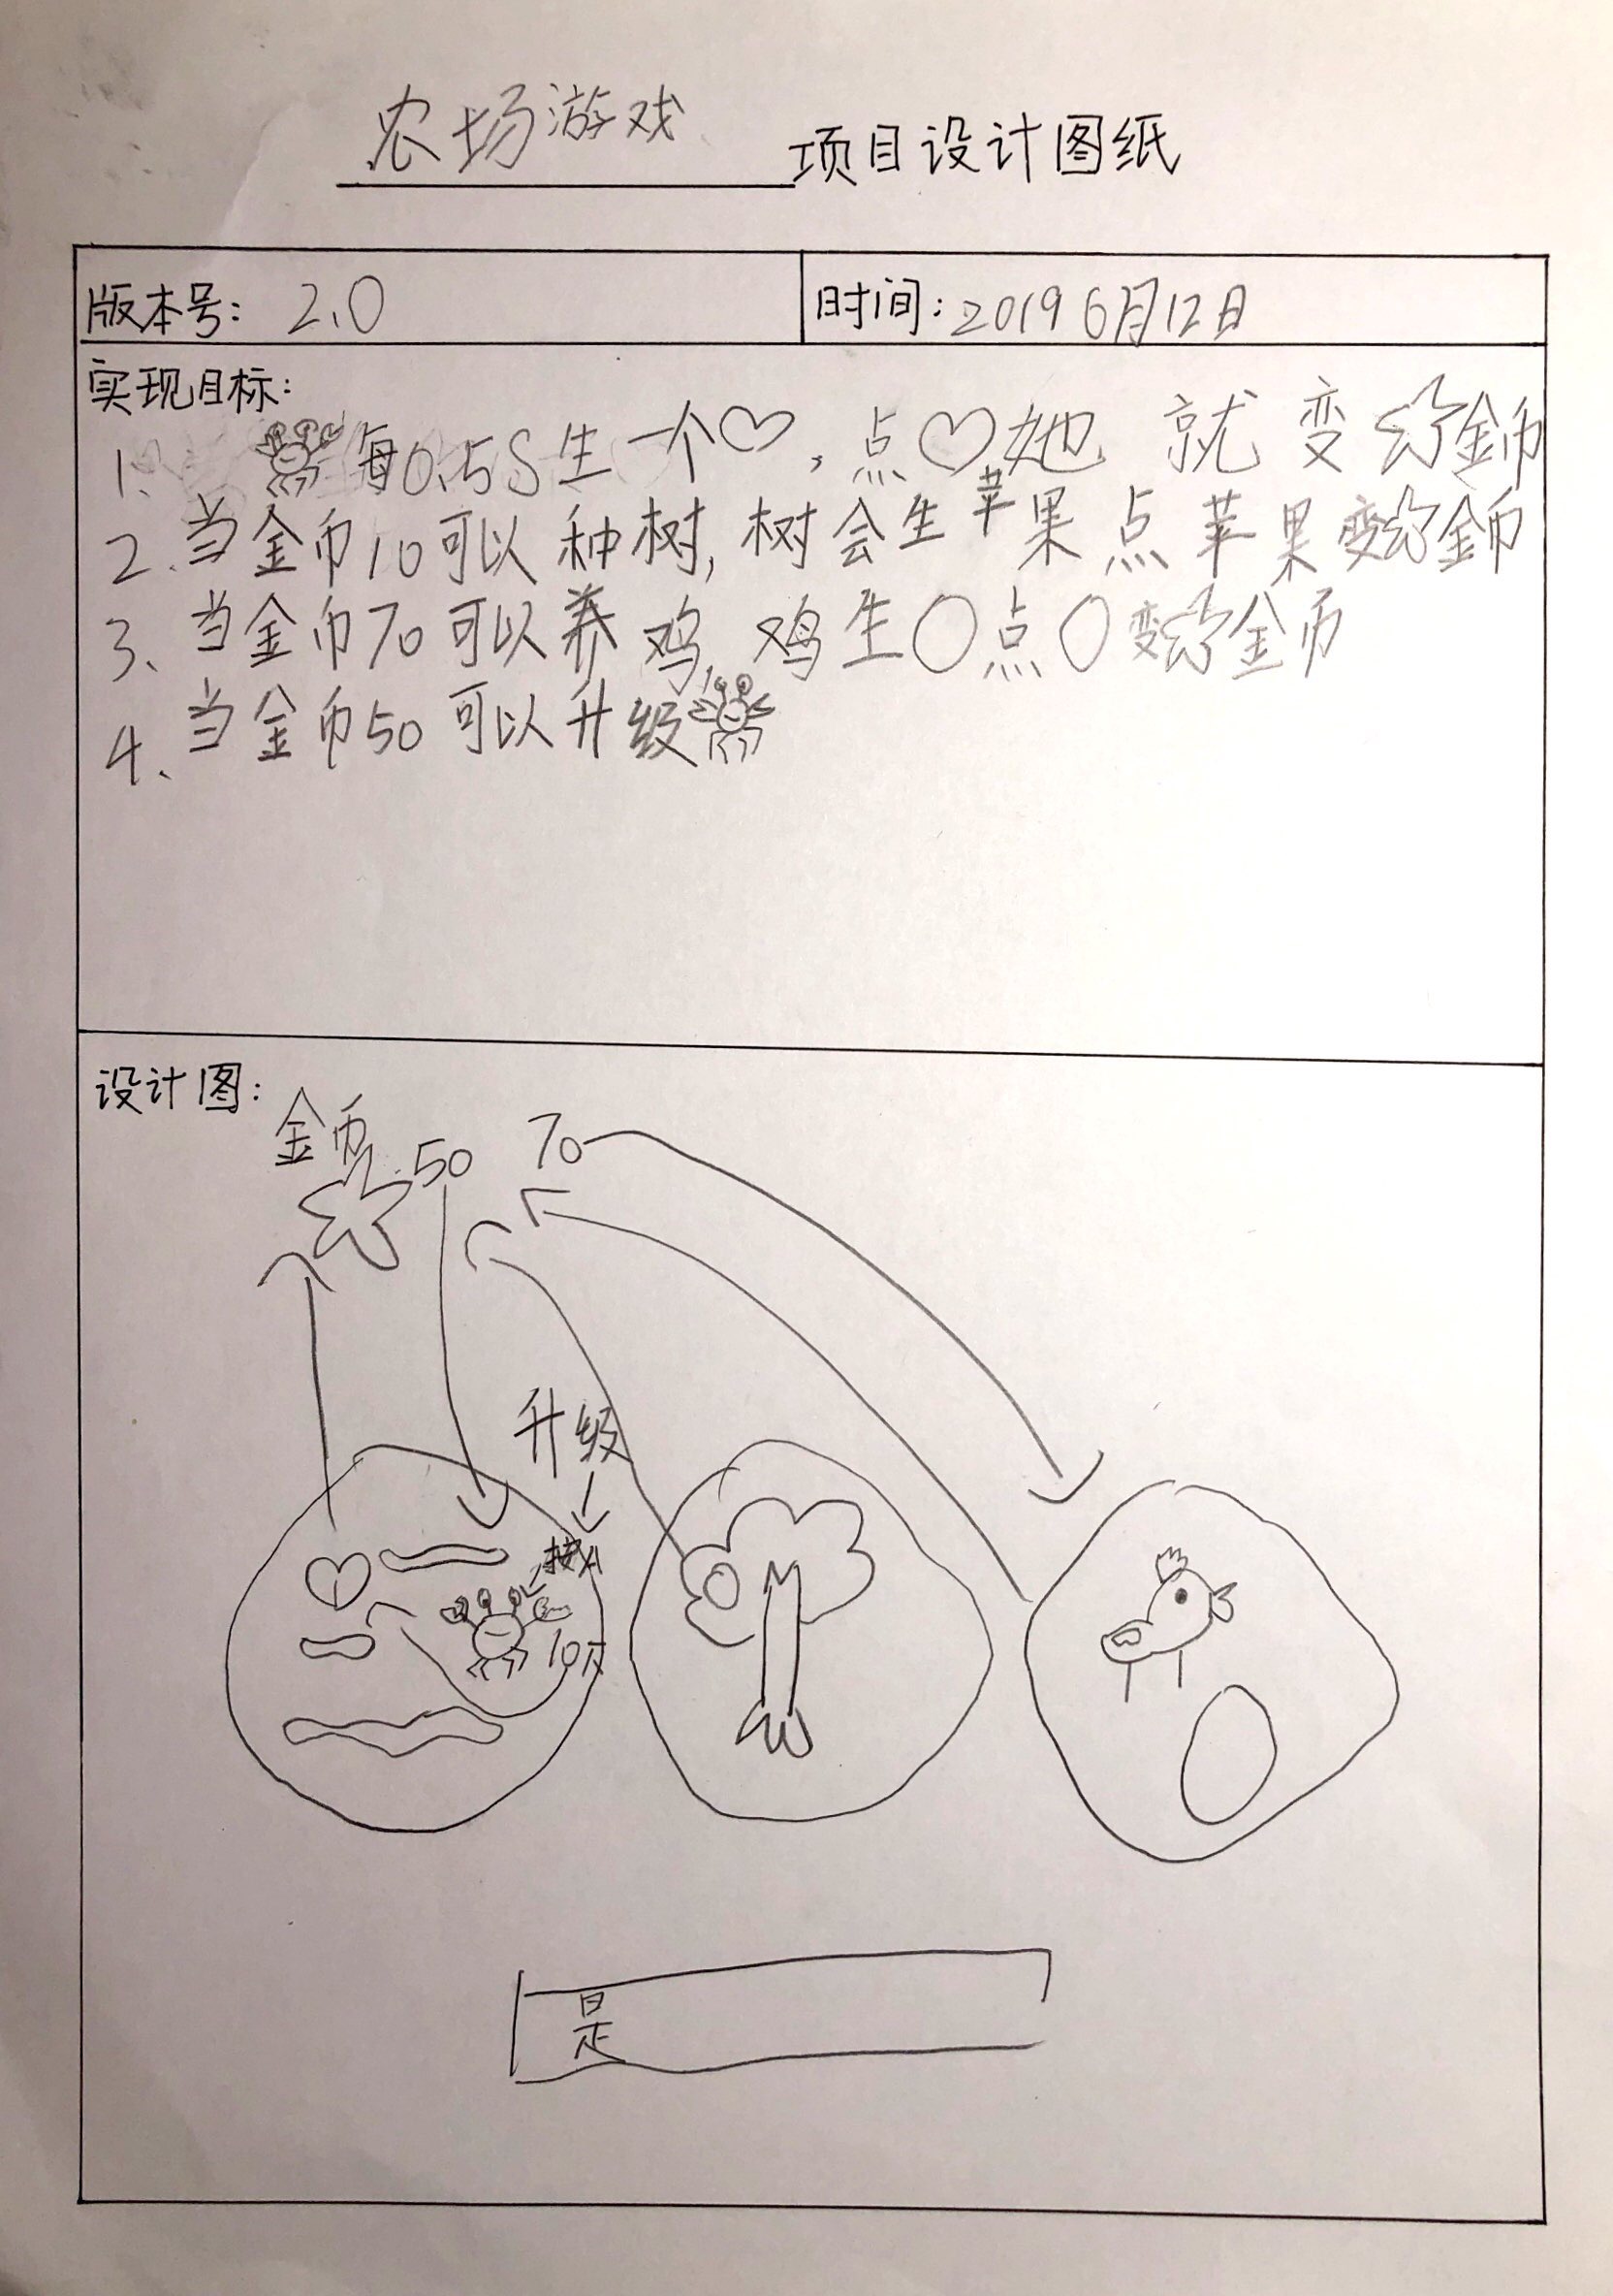 农场游戏 项目设计图纸
版本号: 2.0 时间: 2019 6月12日
实现目标:
1、 每0.5S生一个♡,点♡她 就 变☆金币
2、当金币10可以种树,树会生苹果点苹果变☆金币
3、当金币70可以养鸡,鸡生○点○变☆金币
4、当金币50可以升级
设计图:
金币
50 70
升级
按A
10下
是